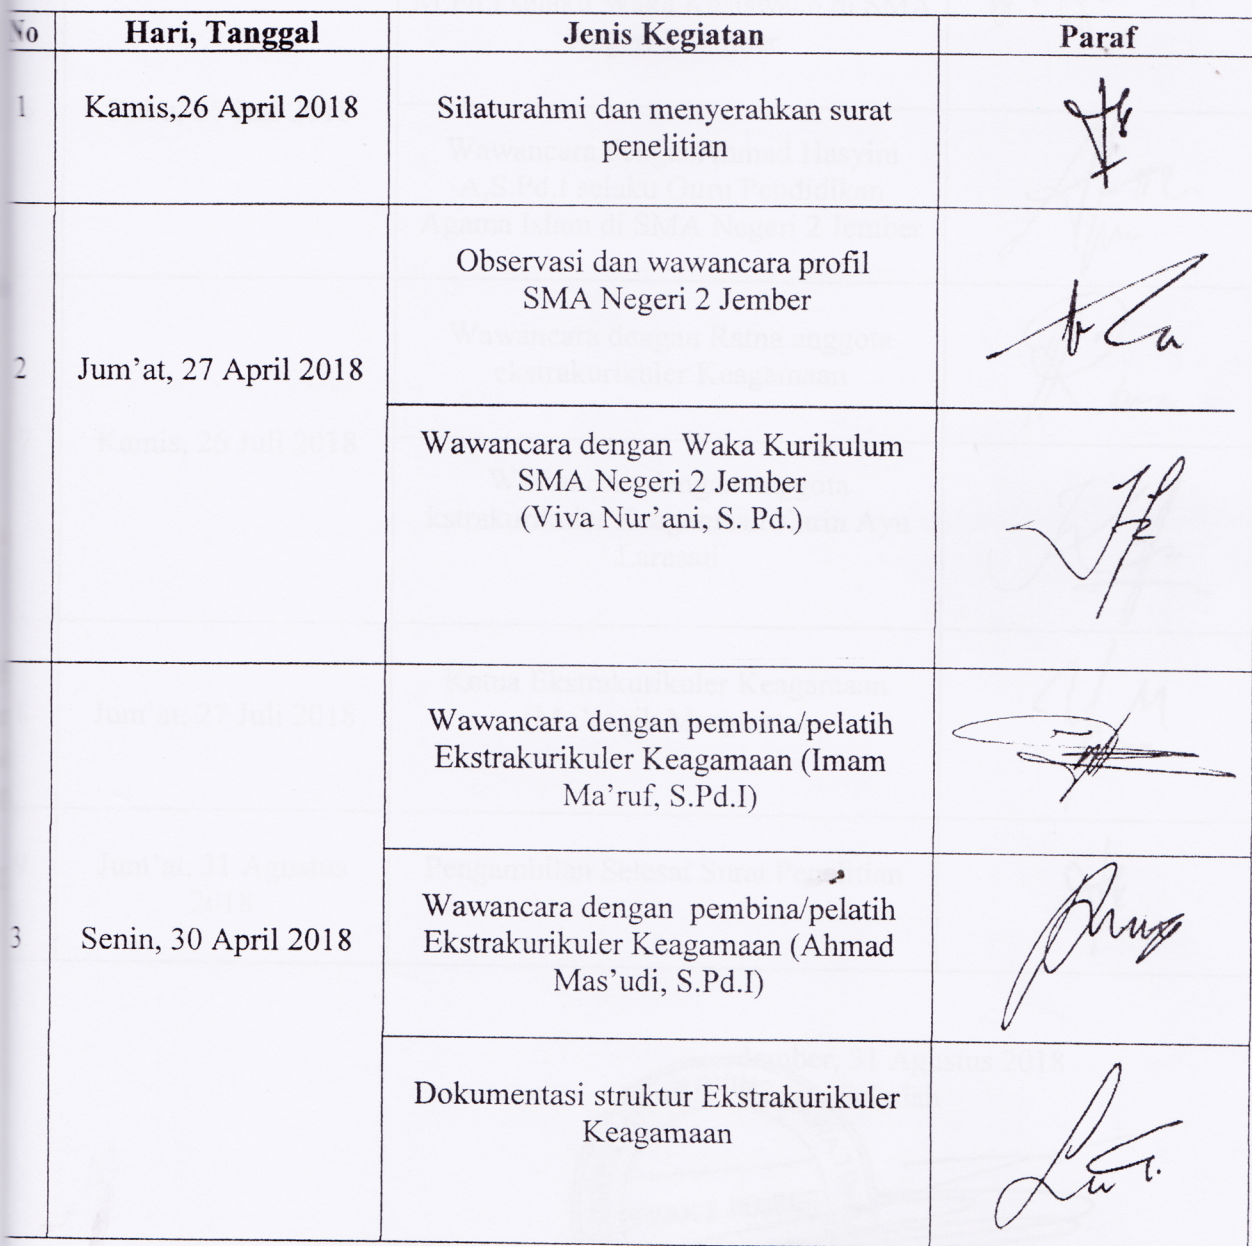 No Hari, Tanggal Jenis Kegiatan Paraf
1 Kamis,26 April 2018 Silaturahmi dan menyerahkan surat
penelitian
2 Jum'at, 27 April 2018
Observasi dan wawancara profil
SMA Negeri 2 Jember
Wawancara dengan Waka Kurikulum
SMA Negeri 2 Jember
(Viva Nur'ani, S. Pd.)
3 Senin, 30 April 2018
Wawancara dengan pembina/pelatih
Ekstrakurikuler Keagamaan (Imam
Ma'ruf, S.Pd.I)
Wawancara dengan pembina/pelatih
Ekstrakurikuler Keagamaan (Ahmad
Mas'udi, S.Pd.I)
Dokumentasi struktur Ekstrakurikuler
Keagamaan